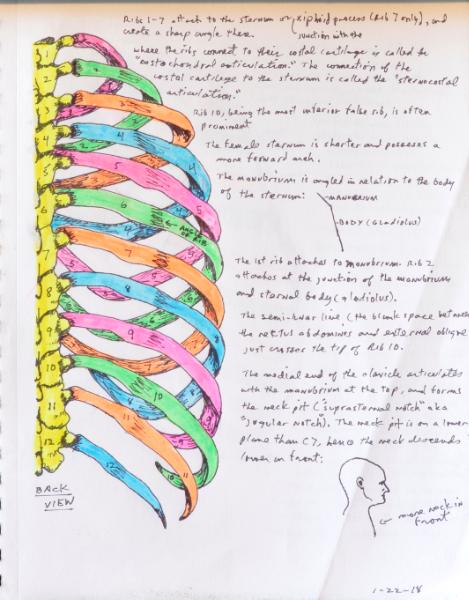 Ribs 1-7 attach to the sternum or xiphoid process (Rib 7 only), and
create a sharp angle there.
junction with the
where the ribs connect to their costal cartilage is called the
"costochondral articulation." The connection of the
costal cartilage to the sternum is called the "sternocostal
articulation."
Rib 10, being the most inferior false rib, is often
prominent
The female sternum is shorter and possesses a
more forward arch.
The manubrium is angled in relation to the body
of the sternum:
MANUBRIUM
BODY (GLADIOLUS)
The 1st rib attaches to manubrium. Rib 2
attaches at the junction of the manubrium
and sternal body (gladiolus).
The semi-lunar line (the blank space between
the rectus abdominus and external oblique
just crosses the tip of Rib 10.
The medial end of the clavicle articulates
with the manubrium at the top, and forms
the neck pit ("suprasternal notch" aka
"jugular notch). The neck pit is on a lower
plane than C7, hence the neck descends
lower in front:
← more neck in
front
1-22-18
1
2
3
4
5
6
7
8
9
10
11
12
2
3
4
4
5
5
6
← ANGLE
OF RIB
7
8
8
9
9
10
11
12
10
11
BACK
VIEW